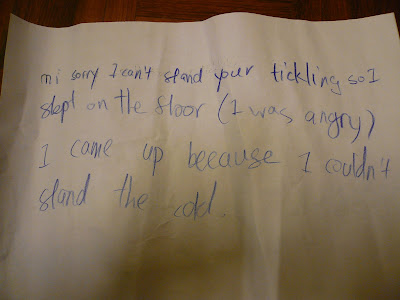 mi sorry I can't stand your tickling so I
slept on the floor (I was angry)
I came up because I couldn't
stand the cold.